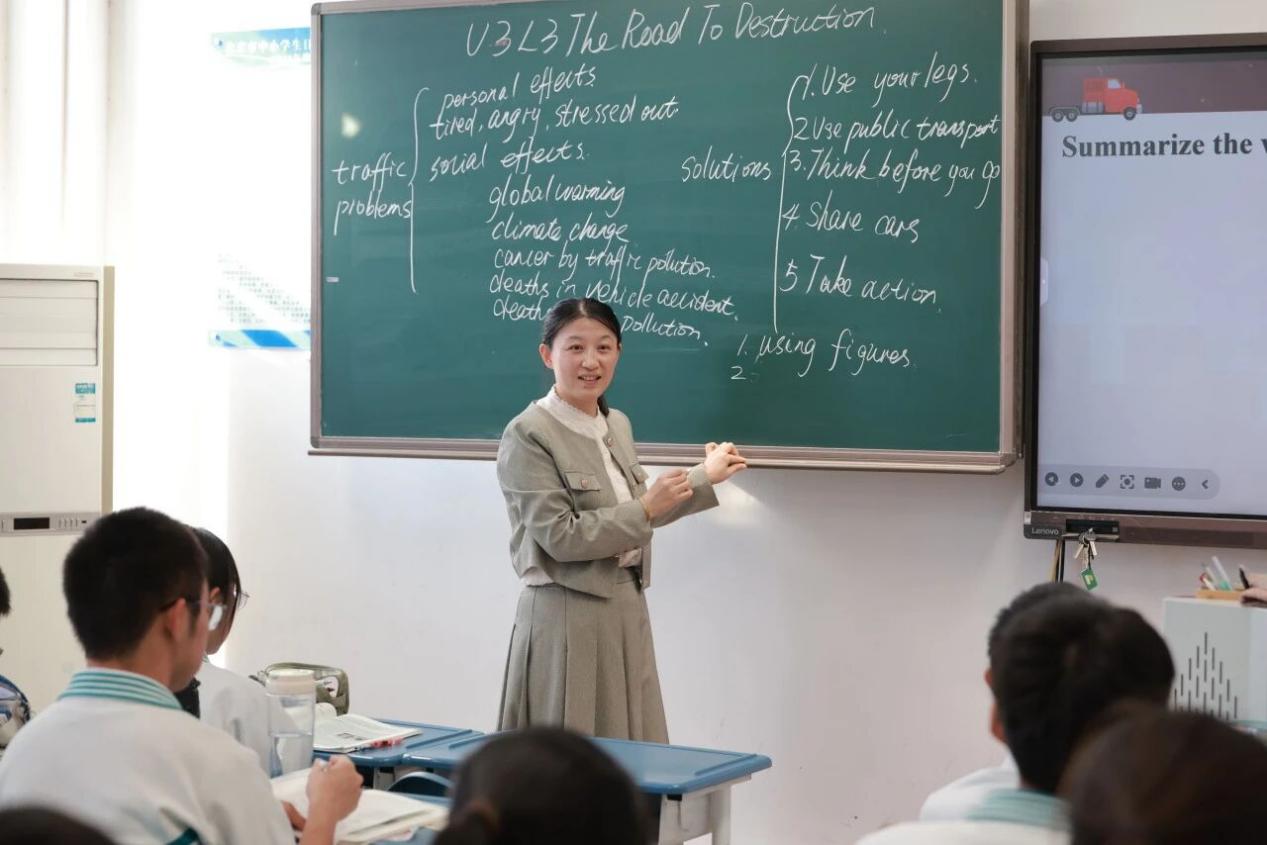 U3 L3 The Road To Destruction.
traffic
problems
personal effects.
tired, angry, stressed out.
social effects.
global warming
climate change
cancer by traffic pollution.
deaths in vehicle accident.
pollution.
solutions
1. Use your legs.
2 Use public transport
3. Think before you go
4. Share cars
5 Take action.
1. using figures.
2.
Summarize the
Lenovo